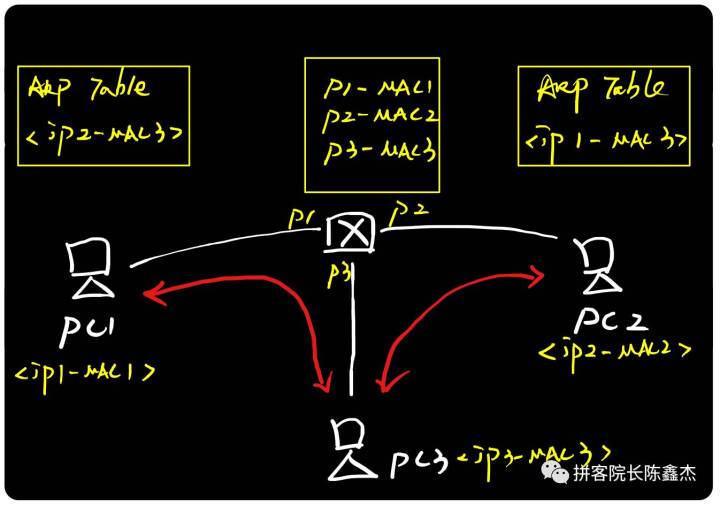 ARP Table
<ip2-MAC3>
P1-MAC1
P2-MAC2
P3-MAC3
ARP Table
<ip1-MAC3>
P1
P2
P3
PC1
<ip1-MAC1>
PC2
<ip2-MAC2>
PC3 <ip3-MAC3>
拼客院长陈鑫杰